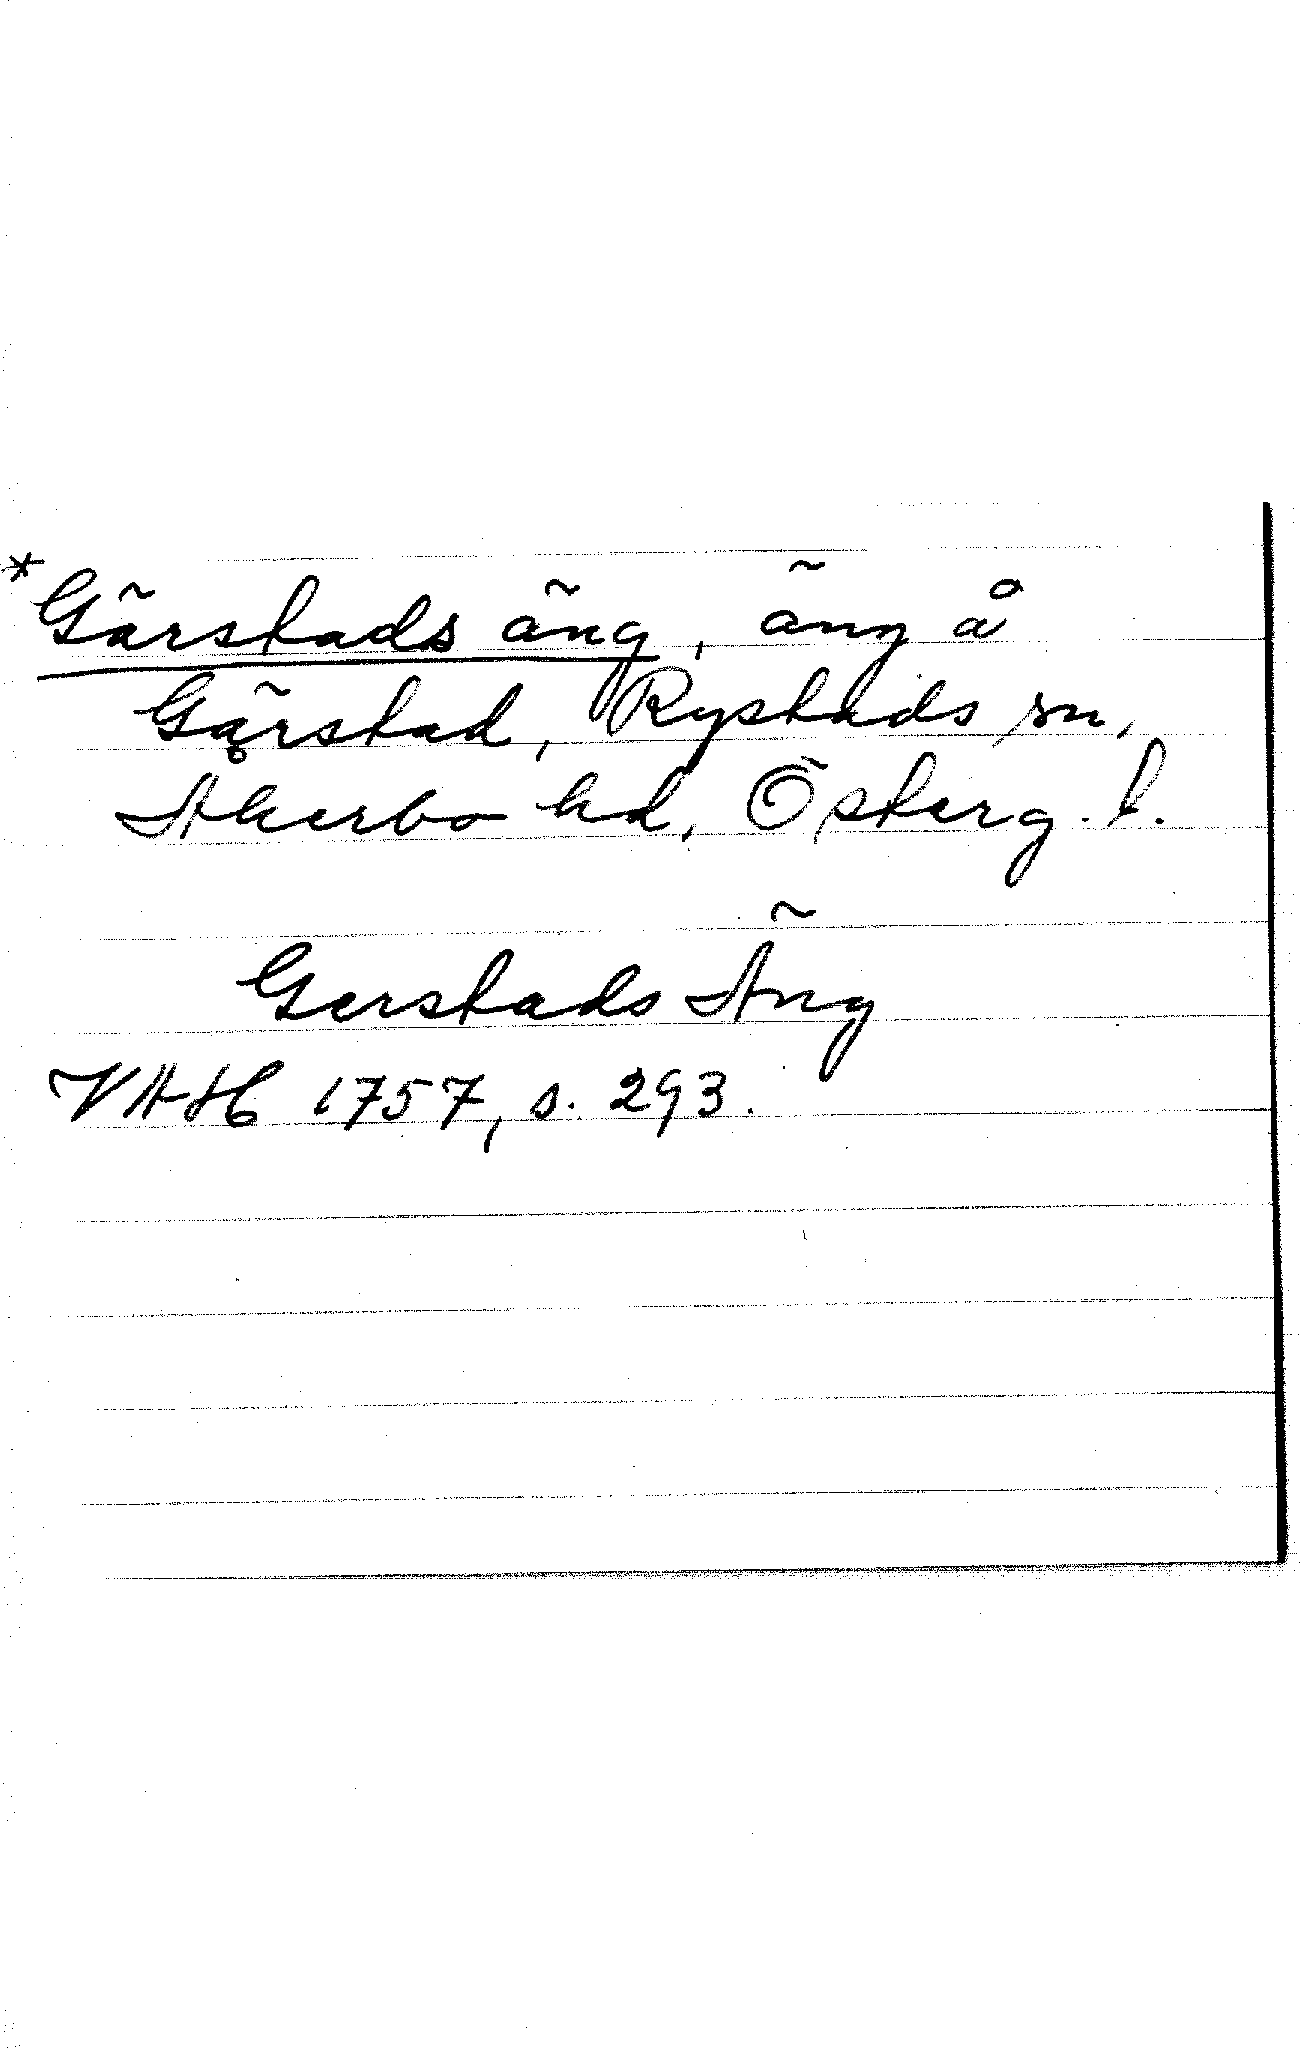 *Gärstads äng, äng å
Gärstad, Rystads sn,
Akerbo hd, Österg. l.
Gerstads Äng
VAH 1757, s. 293.